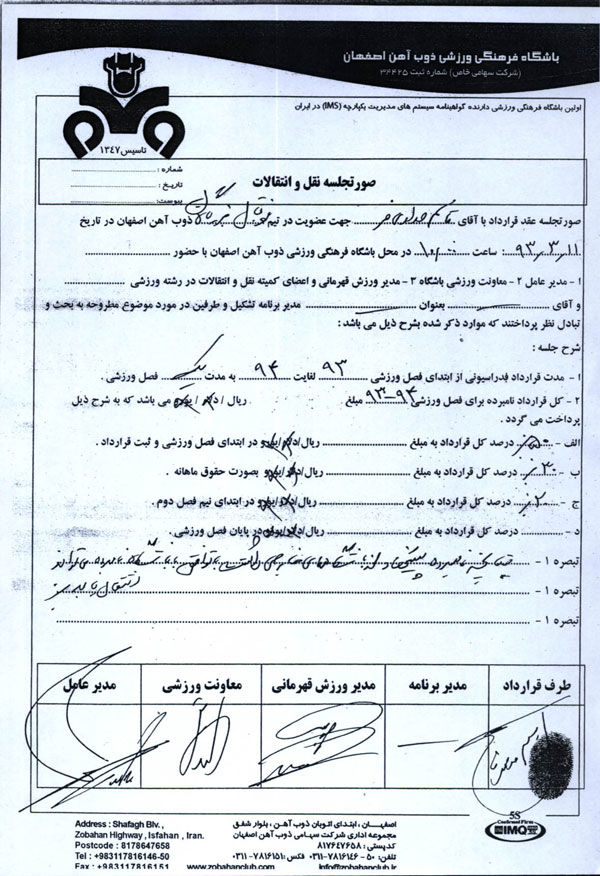 باشگاه فرهنگی ورزشی ذوب آهن اصفهان
(شرکت سهامی خاص) شماره ثبت ۳۴۴۲۵
اولین باشگاه فرهنگی ورزشی دارنده گواهینامه سیستم های مدیریت یکپارچه (IMS) در ایران
تاسیس ۱۳٤۷
شماره :
تاریخ :
پیوست:
صورتجلسه نقل و انتقالات
صورتجلسه عقد قرارداد با آقای قاسم حدادی فر جهت عضویت در تیم فوتبال بزرگسالان ذوب آهن اصفهان در تاریخ
۹۳,۳,۱۱ ساعت ۱۰,۰۰ در محل باشگاه فرهنگی ورزشی ذوب آهن اصفهان با حضور
۱ - مدیر عامل ۲ - معاونت ورزشی باشگاه ۳ - مدیر ورزش قهرمانی و اعضای کمیته نقل و انتقالات در رشته ورزشی
و آقای بعنوان مدیر برنامه تشکیل و طرفین در مورد موضوع مطروحه به بحث و
تبادل نظر پرداختند که موارد ذکر شده بشرح ذیل می باشد :
شرح جلسه :
۱ - مدت قرارداد فدراسیونی از ابتدای فصل ورزشی ۹۳ لغایت ۹۴ به مدت یک فصل ورزشی .
۲ - کل قرارداد نامبرده برای فصل ورزشی ۹۴-۹۳ مبلغ ریال / دلار / یورو می باشد که به شرح ذیل
پرداخت می گردد .
الف - ۵۰٪ درصد کل قرارداد به مبلغ ریال/دلار/یورو در ابتدای فصل ورزشی و ثبت قرارداد .
ب - ۳۰٪ درصد کل قرارداد به مبلغ ریال/دلار/یورو بصورت حقوق ماهانه .
ج - ۲۰٪ درصد کل قرارداد به مبلغ ریال/دلار/یورو در ابتدای نیم فصل دوم .
د - درصد کل قرارداد به مبلغ ریال/دلار/یورو در پایان فصل ورزشی .
تبصره ۱ - چنانچه نامبرده پیشنهاد از باشگاههای خارجی داشت با توافق با باشگاه نامبرده می تواند
تبصره ۱ - انتقال یابد
تبصره ۱ -
طرف قرارداد
مدیر برنامه
مدیر ورزش قهرمانی
معاونت ورزشی
مدیر عامل
5S
Confirmed Firm
IMQ
اصفهان ، ابتدای اتوبان ذوب آهن ، بلوار شفق
مجموعه اداری شرکت سهامی ذوب آهن اصفهان
کدپستی : ۸۱۷۶۴۷۶۵۸
تلفن: ۵۰ - ۷۸۱۶۱۴۶-۰۳۱۱ فکس: ۷۸۱۶۱۵۱-۰۳۱۱
info@zobahanclub.com
www.zobahanclub.com
Address : Shafagh Blv. ,
Zobahan Highway , Isfahan , Iran.
Postcode : 8178647658
Tel : +983117816146-50
Fax : +983117816151